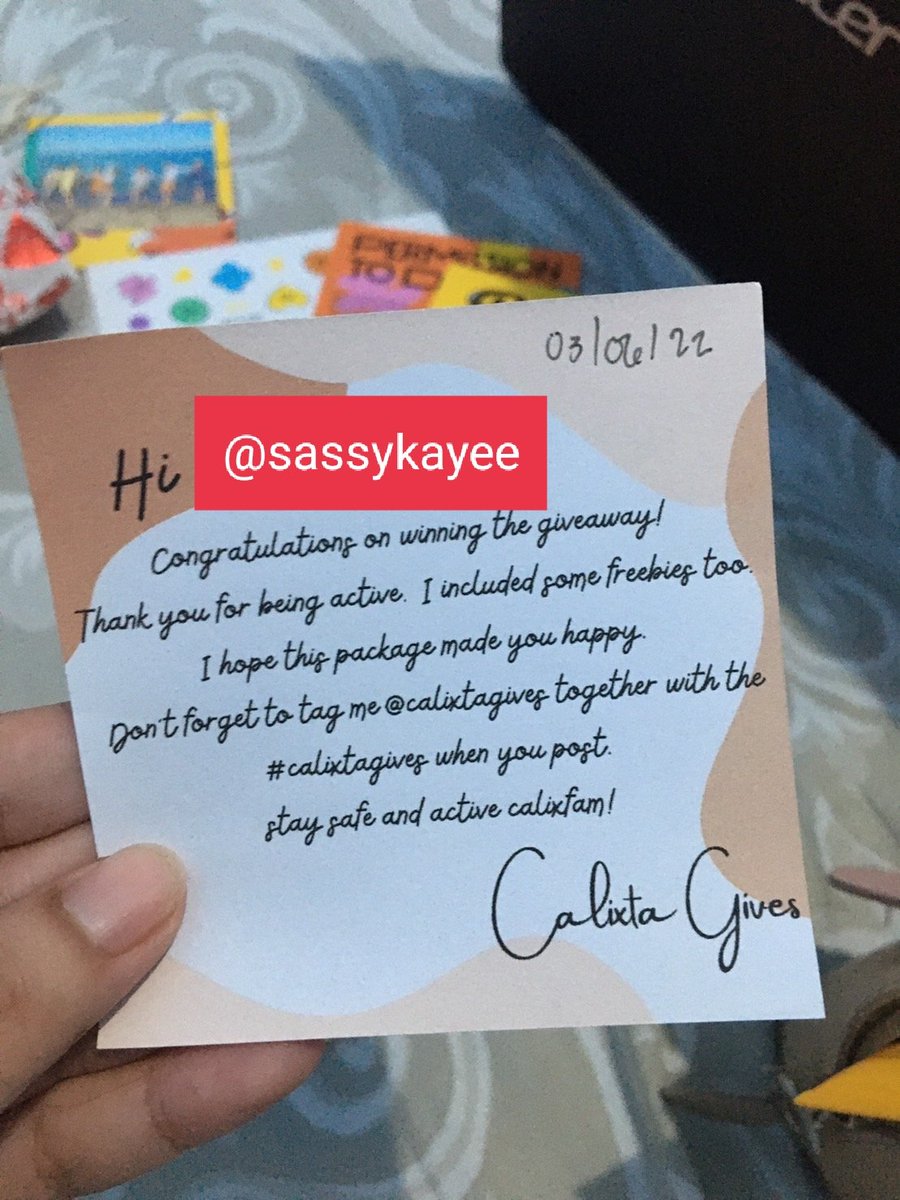 cer
PERMISSION
TO D
03/06/22
Hi @sassykayee
Congratulations on winning the giveaway!
Thank you for being active. I included some freebies too.
I hope this package made you happy.
Don't forget to tag me @calixtagives together with the
#calixtagives when you post.
stay safe and active calixfam!
Calixta Gives